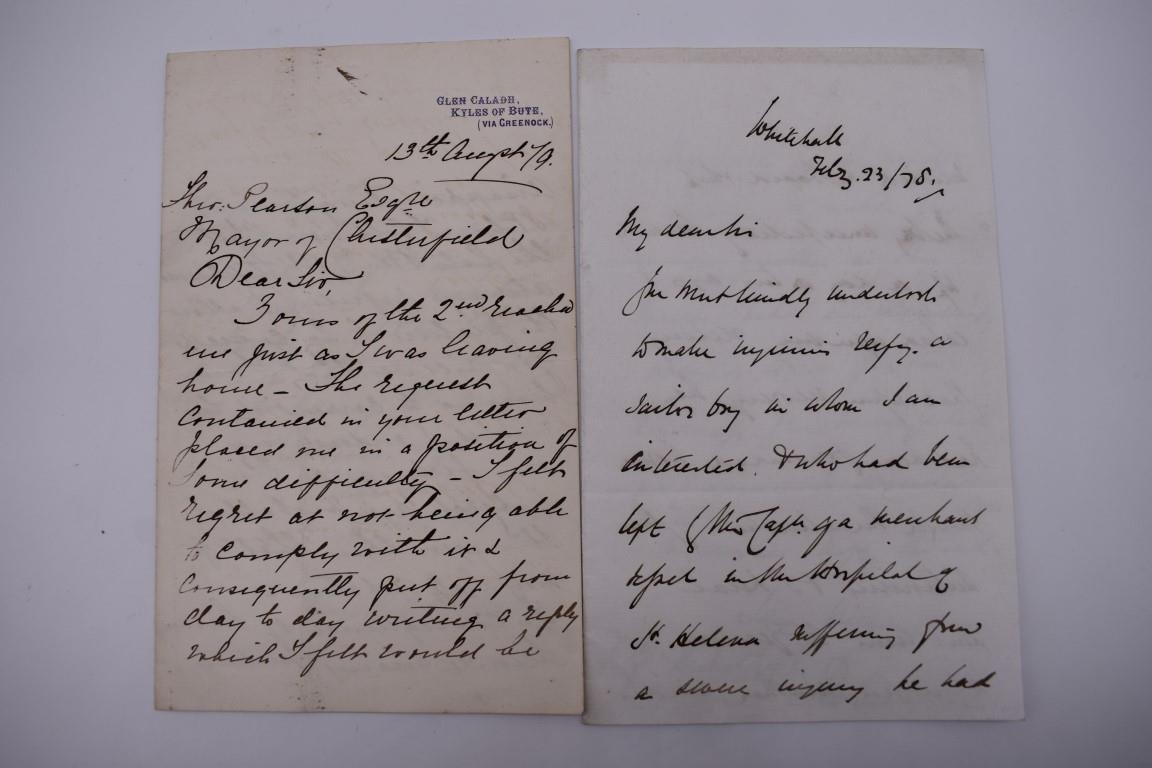 GLEN CALADH,
KYLES OF BUTE,
(VIA GREENOCK.)
13th Augst /9.
Theo: Pearson Esqre
Mayor of Chesterfield
Dear Sir,
Yours of the 2nd reached
me just as I was leaving
home - The request
contained in your letter
placed me in a position of
some difficulty - I felt
regret at not being able
to comply with it &
consequently put off from
day to day writing a reply
which I felt would be
Whitehall
Feby. 23/78.
My dear Sir
You most kindly undertook
to make inquiries respg. a
sailor boy in whom I am
interested. & who had been
left by the Capn. of a merchant
vessel in the Hospital of
St. Helena suffering from
a severe injury he had